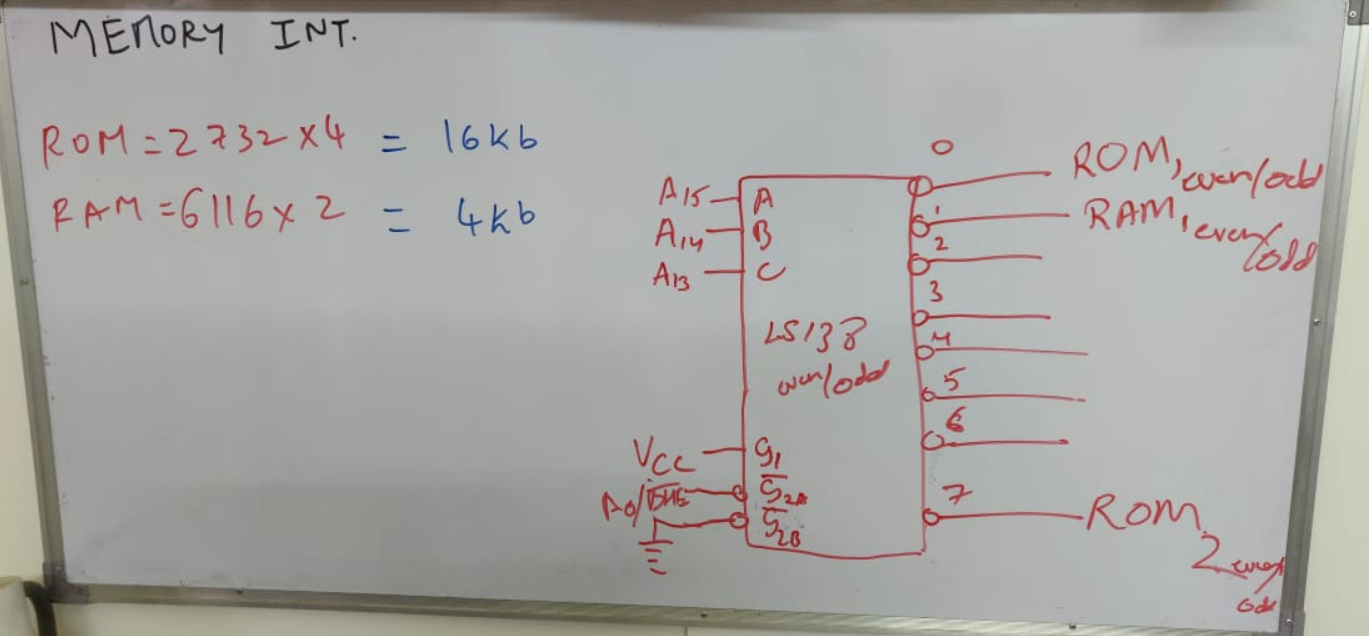 MEMORY INT.
ROM = 2732 x 4 = 16kb
RAM = 6116 x 2 = 4kb
A15 A
A14 B
A13 C
LS138
even/odd
VCC G1
A0/BHE G2A
G2B
0 ROM1 even/odd
1 RAM1 even/odd
2
3
4
5
6
7 ROM2 even/odd